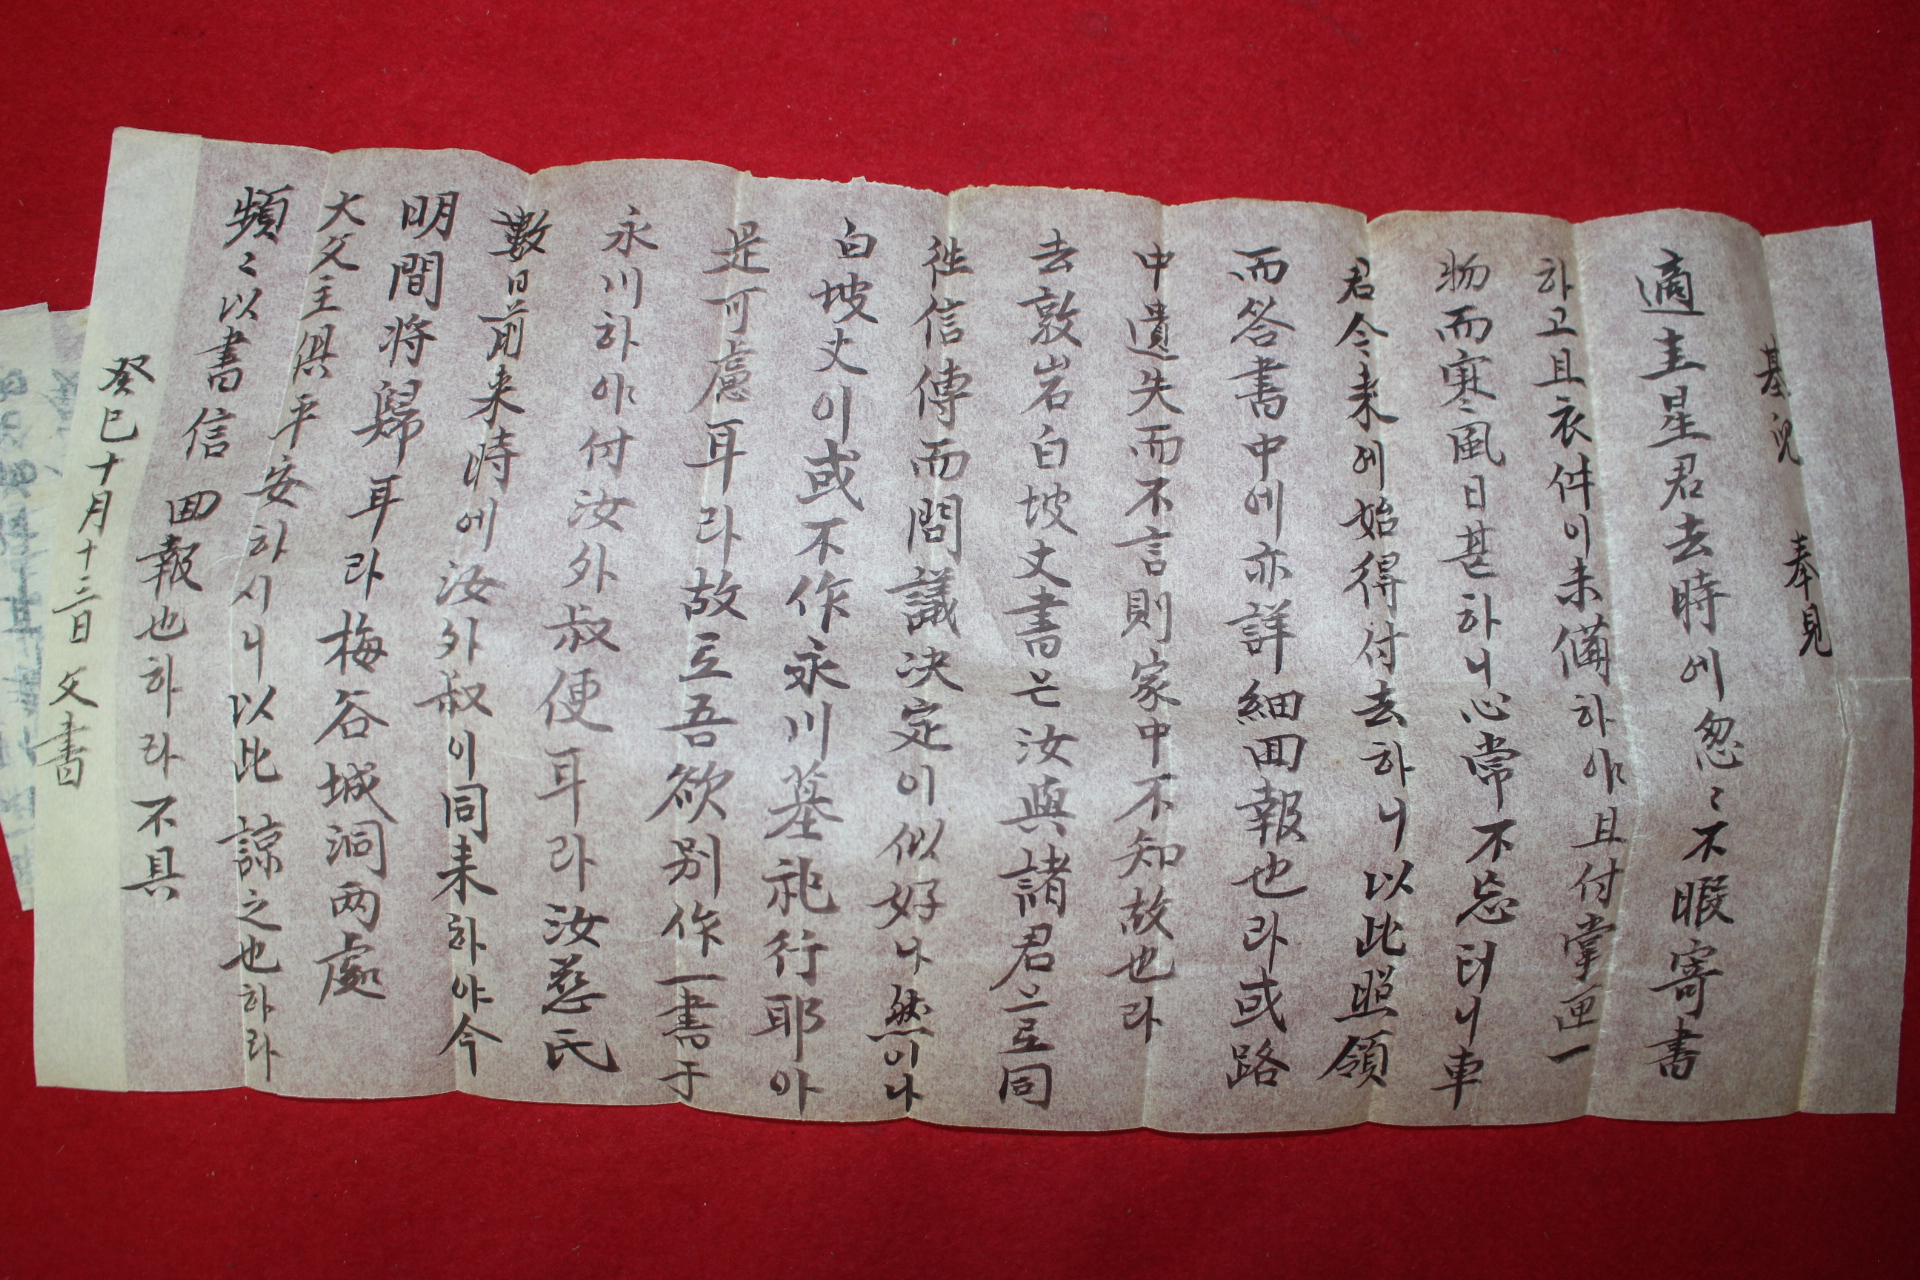 基兒 奉見
適圭星君去時에忽〻不暇寄書
하고且衣件이未備하야且付掌匣一
物而寒風日甚하니心常不忘터니車
君今来에始得付去하니以此照領
而答書中에亦詳細回報也라或路
中遺失而不言則家中不知故也라
去敦岩白坡丈書는汝與諸君으로同
徃信傳而問議决定이似好나然이나
白坡丈이或不作永川墓祀行耶아
是可慮耳라故로吾欲別作一書于
永川하야付汝外叔便耳라汝慈氏
數日前来時에汝外叔이同来하야今
明間将歸耳라梅谷城洞两處
大父主俱平安하시니以此諒之也하라
頻〻以書信回報也하라不具
癸巳十月十三日父書